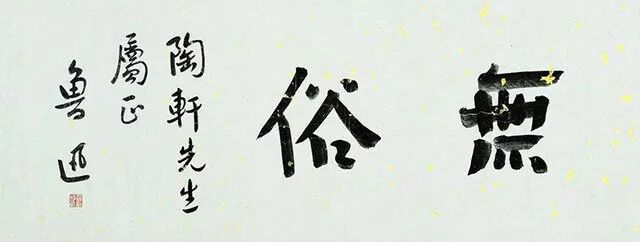 無俗
陶軒先生
屬正
魯迅